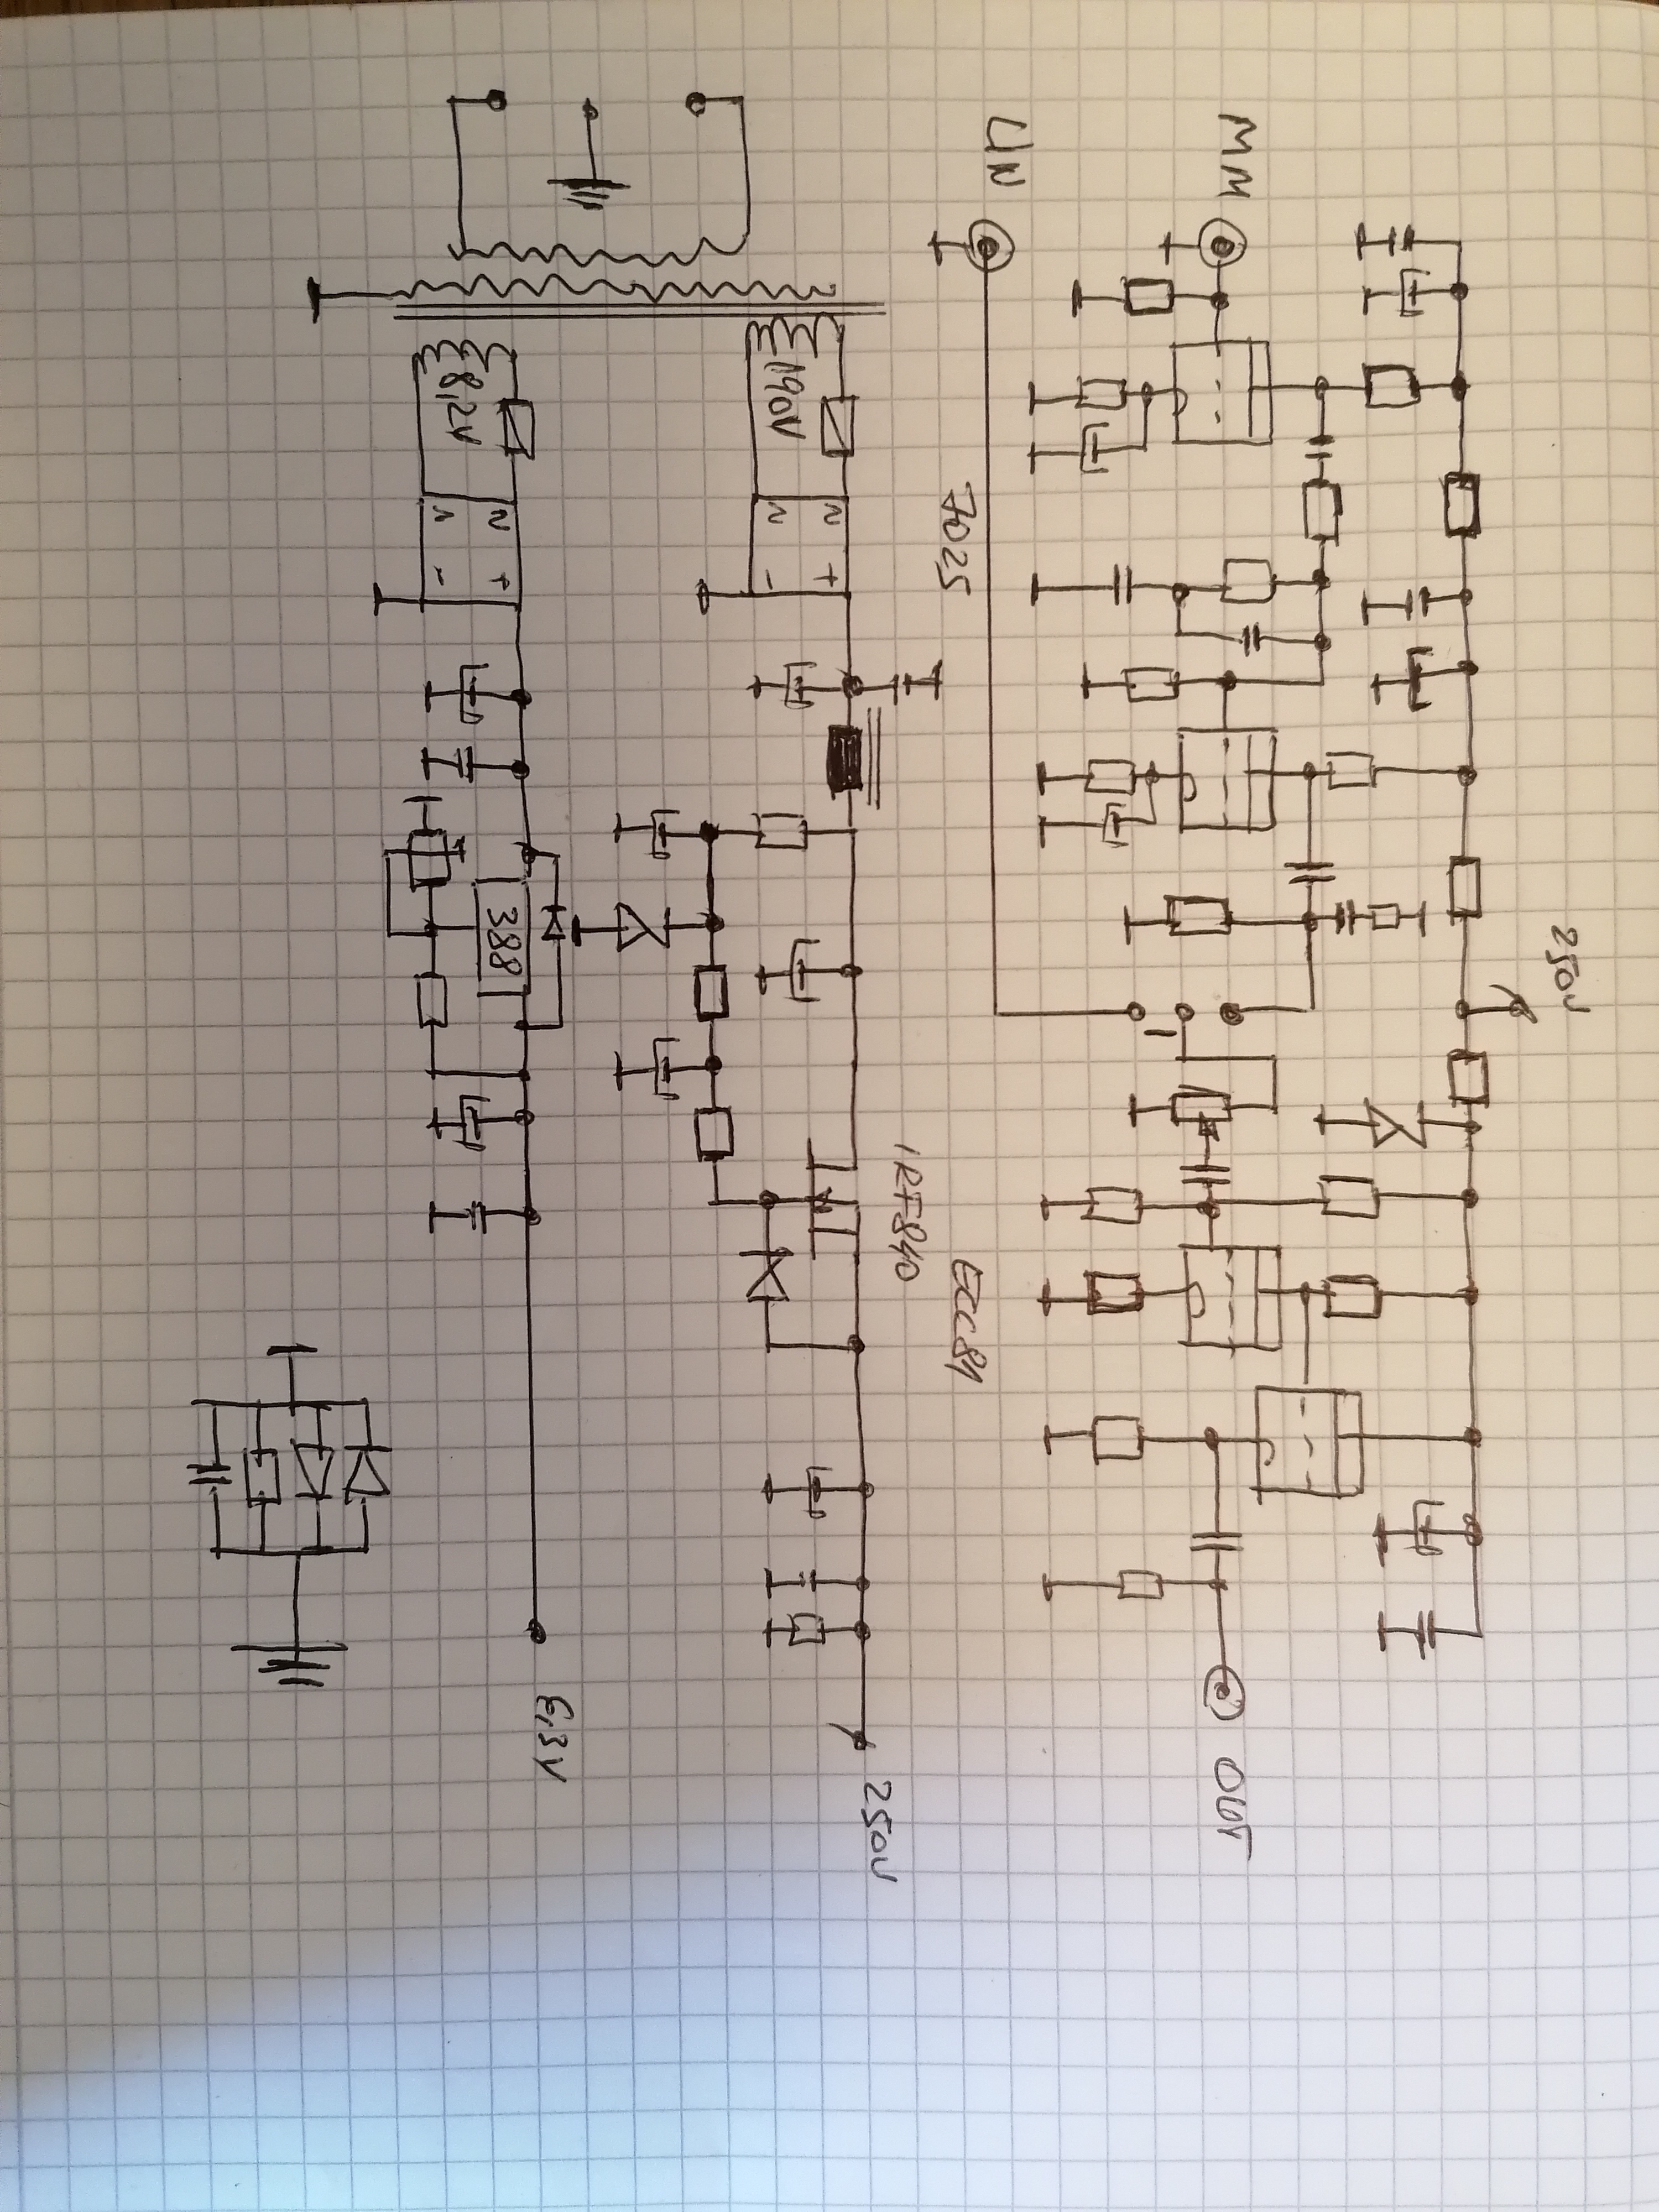 250V
MM
LIN
7025
ECC81
OUT
190V
IRF840
250V
8,2V
388
6,3V
~ ~
- +
~ ~
- +